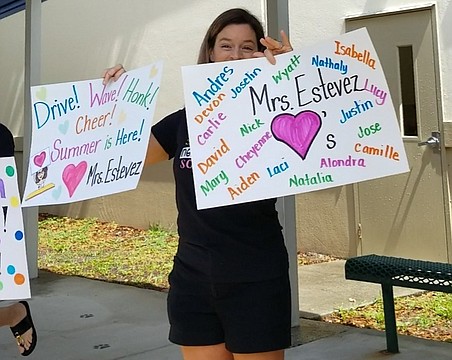 Drive! Wave! Honk!
Cheer!
Summer is Here!
Mrs. Estevez
Isabella
Andres Joselyn Wyatt Nathaly
Devon Mrs. Estevez Lucy
Carlie Nick Justin
David Cheyenne 's Jose
Mary Laci Alondra Camille
Aiden Natalia